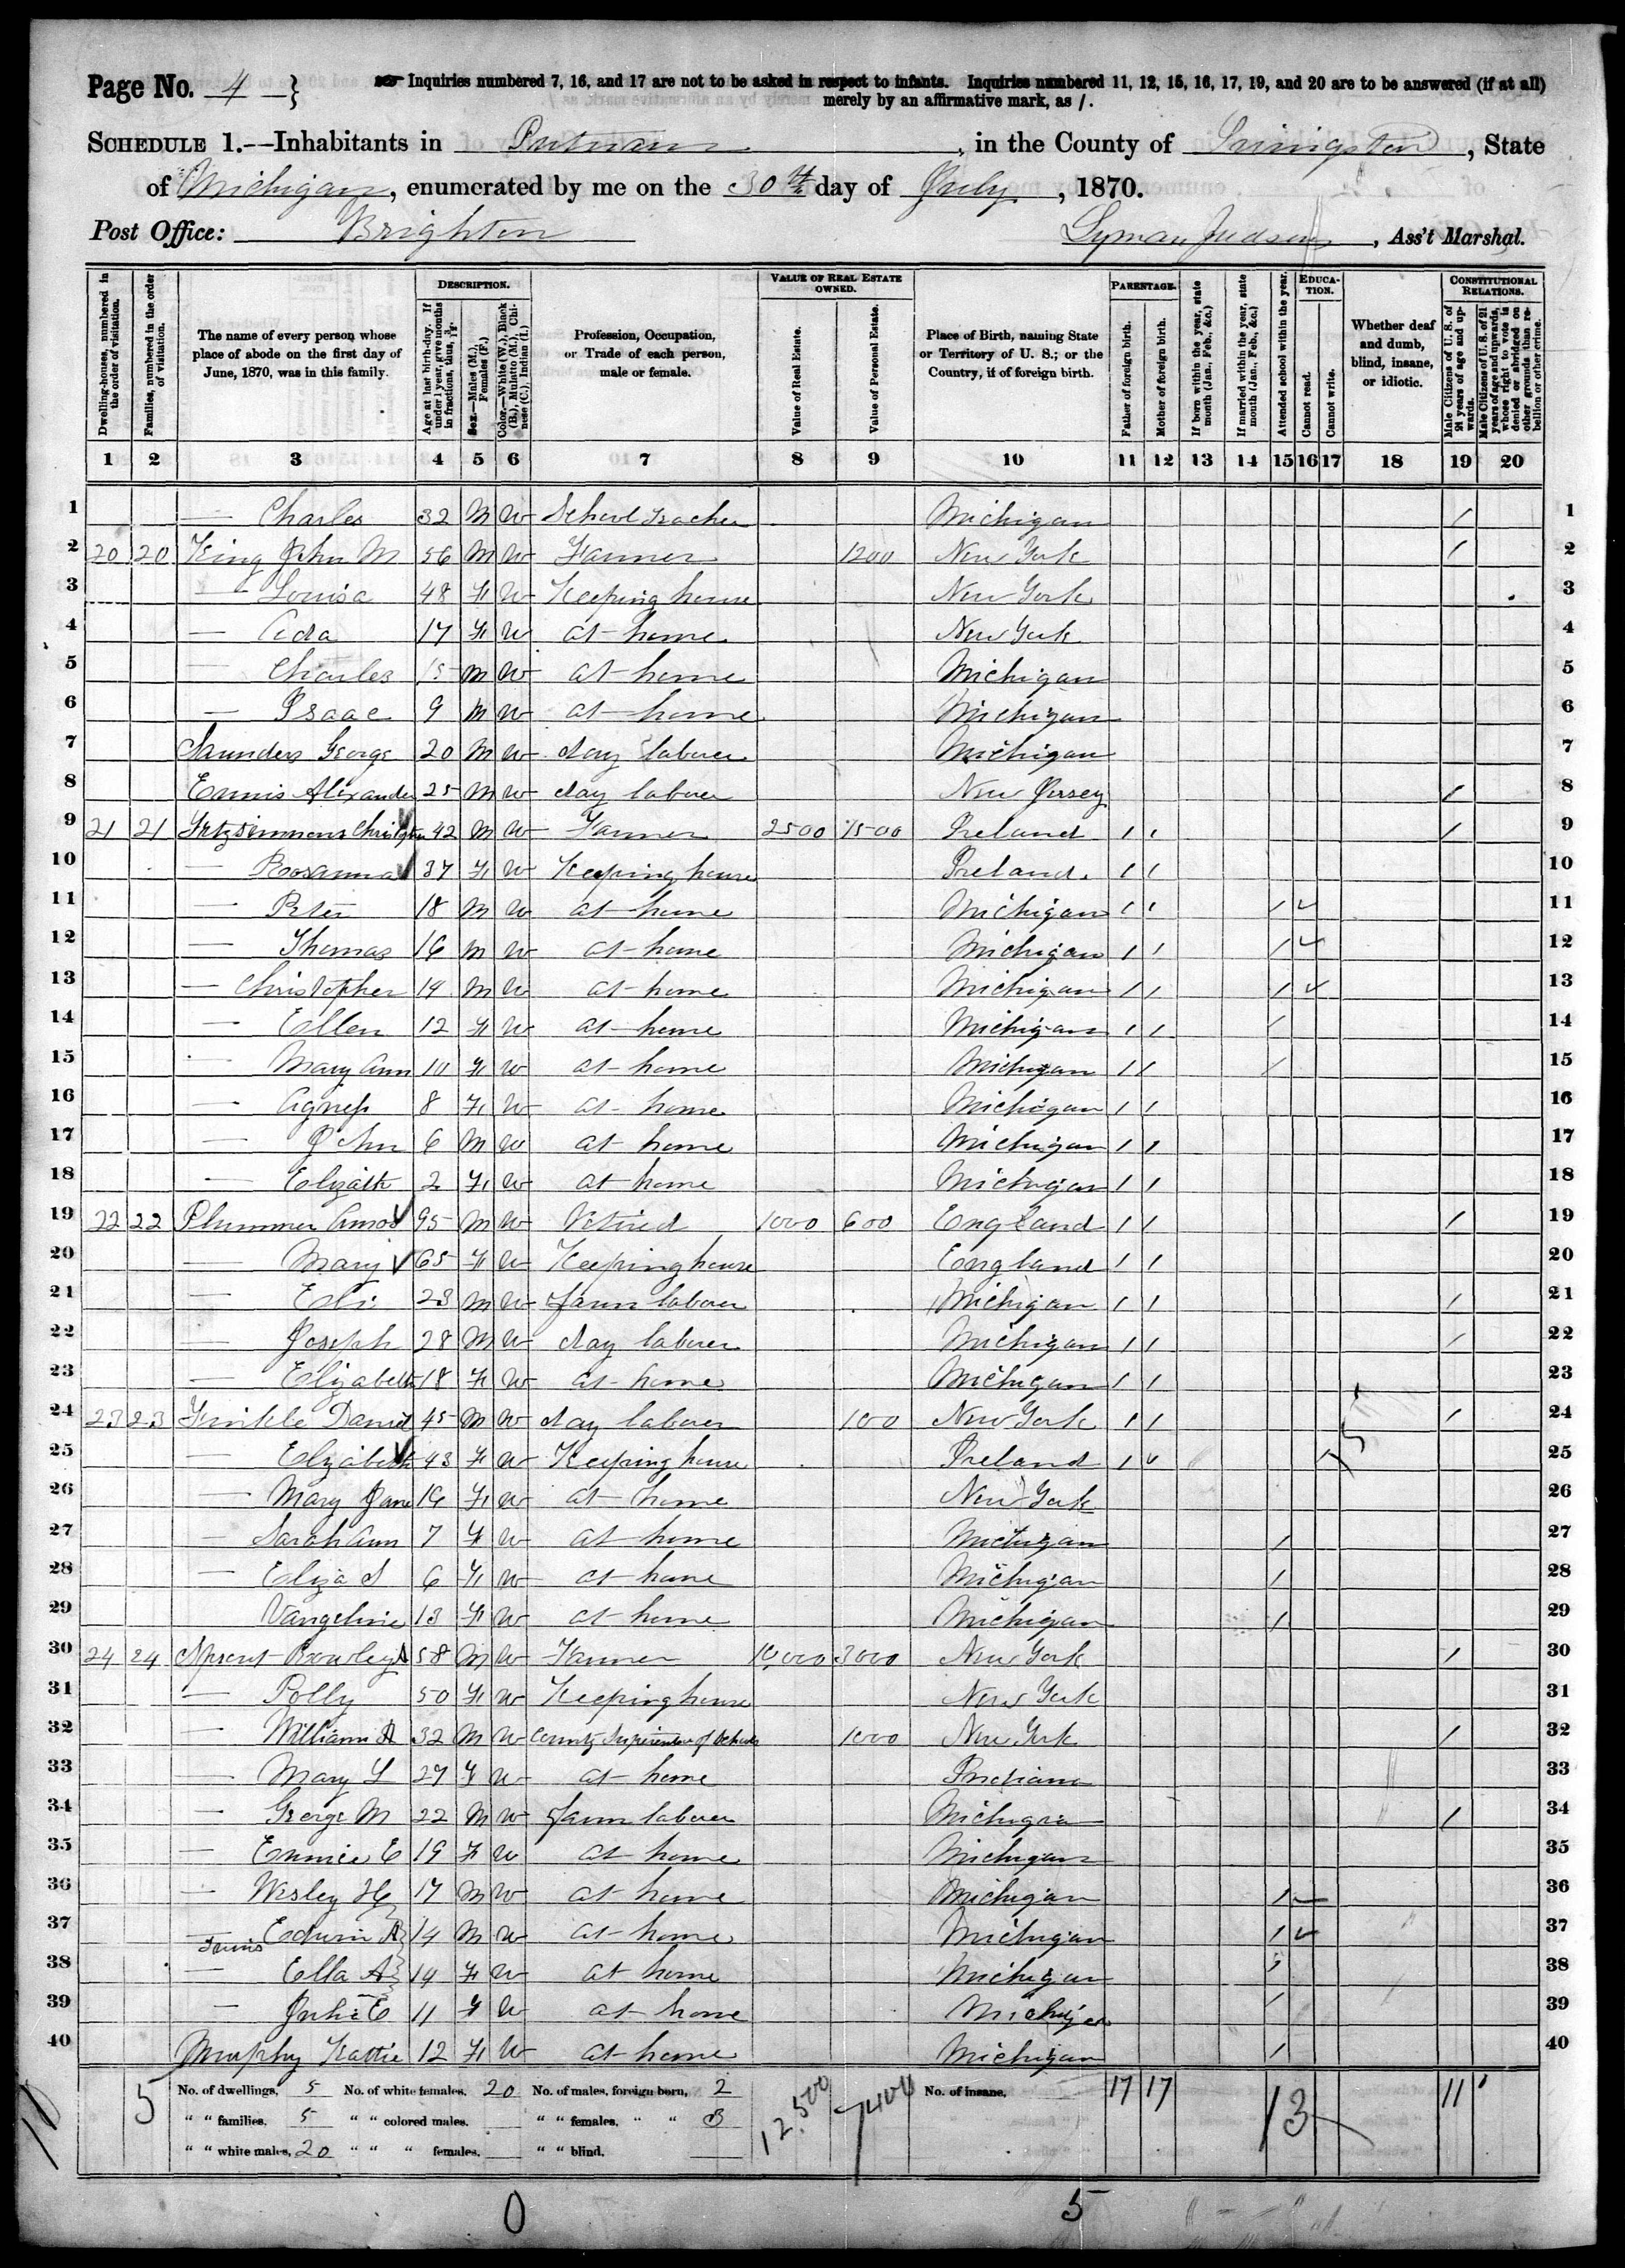 Page No. 4 }
Inquiries numbered 7, 16, and 17 are not to be asked in respect to infants. Inquiries numbered 11, 12, 15, 16, 17, 19, and 20 are to be answered (if at all)
merely by an affirmative mark, as /.
SCHEDULE 1.—Inhabitants in Putnam, in the County of Livingston, State
of Michigan, enumerated by me on the 30th day of July, 1870.
Post Office: Brighton Lyman Judson, Ass't Marshal.
Dwelling-houses, numbered in the order of visitation.
Families, numbered in the order of visitation.
The name of every person whose place of abode on the first day of June, 1870, was in this family.
DESCRIPTION.
Age at last birth-day. If under 1 year, give months in fractions, thus, 3/12.
Sex.—Males (M.), Females (F.)
Color.—White (W.), Black (B.), Mulatto (M.), Chinese (C.), Indian (I.)
Profession, Occupation, or Trade of each person, male or female.
VALUE OF REAL ESTATE OWNED.
Value of Real Estate.
Value of Personal Estate.
Place of Birth, naming State or Territory of U. S.; or the Country, if of foreign birth.
PARENTAGE.
Father of foreign birth.
Mother of foreign birth.
If born within the year, state month (Jan., Feb., &c.)
If married within the year, state month (Jan., Feb., &c.)
Attended school within the year.
EDUCATION.
Cannot read.
Cannot write.
Whether deaf and dumb, blind, insane, or idiotic.
CONSTITUTIONAL RELATIONS.
Male Citizens of U. S. of 21 years of age and upwards.
Male Citizens of U. S. of 21 years of age and upwards, whose right to vote is denied or abridged on other grounds than rebellion or other crime.
1 2 3 4 5 6 7 8 9 10 11 12 13 14 15 16 17 18 19 20
1 — Charles 32 M W School Teacher Michigan / 1
2 20 20 King John M 56 M W Farmer 1200 New York / 2
3 — Louisa 48 F W Keeping house New York 3
4 — Ada 17 F W at home New York 4
5 — Charles 15 M W at home Michigan 5
6 — Isaac 9 M W at home Michigan 6
7 Saunders George 20 M W day laborer Michigan 7
8 Ennis Alexander 25 M W day laborer New Jersey / 8
9 21 21 Fitzsimmons Christopher 42 M W Farmer 2500 1500 Ireland / / / 9
10 — Rosanna 37 F W Keeping house Ireland / / 10
11 — Peter 18 M W at home Michigan / / / ✓ 11
12 — Thomas 16 M W at home Michigan / / / ✓ 12
13 — Christopher 14 M W at home Michigan / / / ✓ 13
14 — Ellen 12 F W at home Michigan / / / 14
15 — Mary Ann 10 F W at home Michigan / / / 15
16 — Agness 8 F W at home Michigan / / 16
17 — John 6 M W at home Michigan / / 17
18 — Elizath 2 F W at home Michigan / / 18
19 22 22 Plummer Amos 95 M W Retired 1000 600 England / / / 19
20 — Mary 65 F W Keeping house England / / 20
21 — Eli 23 M W farm laborer Michigan / / / 21
22 — Joseph 28 M W day laborer Michigan / / / 22
23 — Elizabeth 18 F W at home Michigan / / 23
24 23 23 Finkle Daniel 45 M W day laborer 100 New York / / / 24
25 — Elizabeth 43 F W Keeping house Ireland / / / 25
26 — Mary Jane 16 F W at home New York 26
27 — Sarah Ann 7 F W at home Michigan / 27
28 — Eliza S 6 F W at home Michigan / 28
29 Vangeline 13 F W at home Michigan / 29
30 24 24 58 M W Farmer 10,000 3000 New York / 30
31 — Polly 50 F W Keeping house New York 31
32 — William A 32 M W County Superinten of Schools 1000 New York / 32
33 — Mary L 27 F W at home Indiana 33
34 — George M 22 M W farm laborer Michigan / 34
35 — Eunice E 19 F W at home Michigan 35
36 — Wesley H 17 M W at home Michigan / 36
37 — Edwin A } 14 M W at home Michigan / ✓ 37
twins
38 — Ella A } 14 F W at home Michigan / 38
39 — Julia E 11 F W at home Michigan / 39
40 Murphy Kattie 12 F W at home Michigan / 40
No. of dwellings, 5 No. of white females, 20 No. of males, foreign born, 2 No. of insane, 17 17 13 11
" " families, 5 " " colored males, " " females, " " 3 12,500 7400
" " white males, 20 " " " females, " " blind,
10 5
0 5